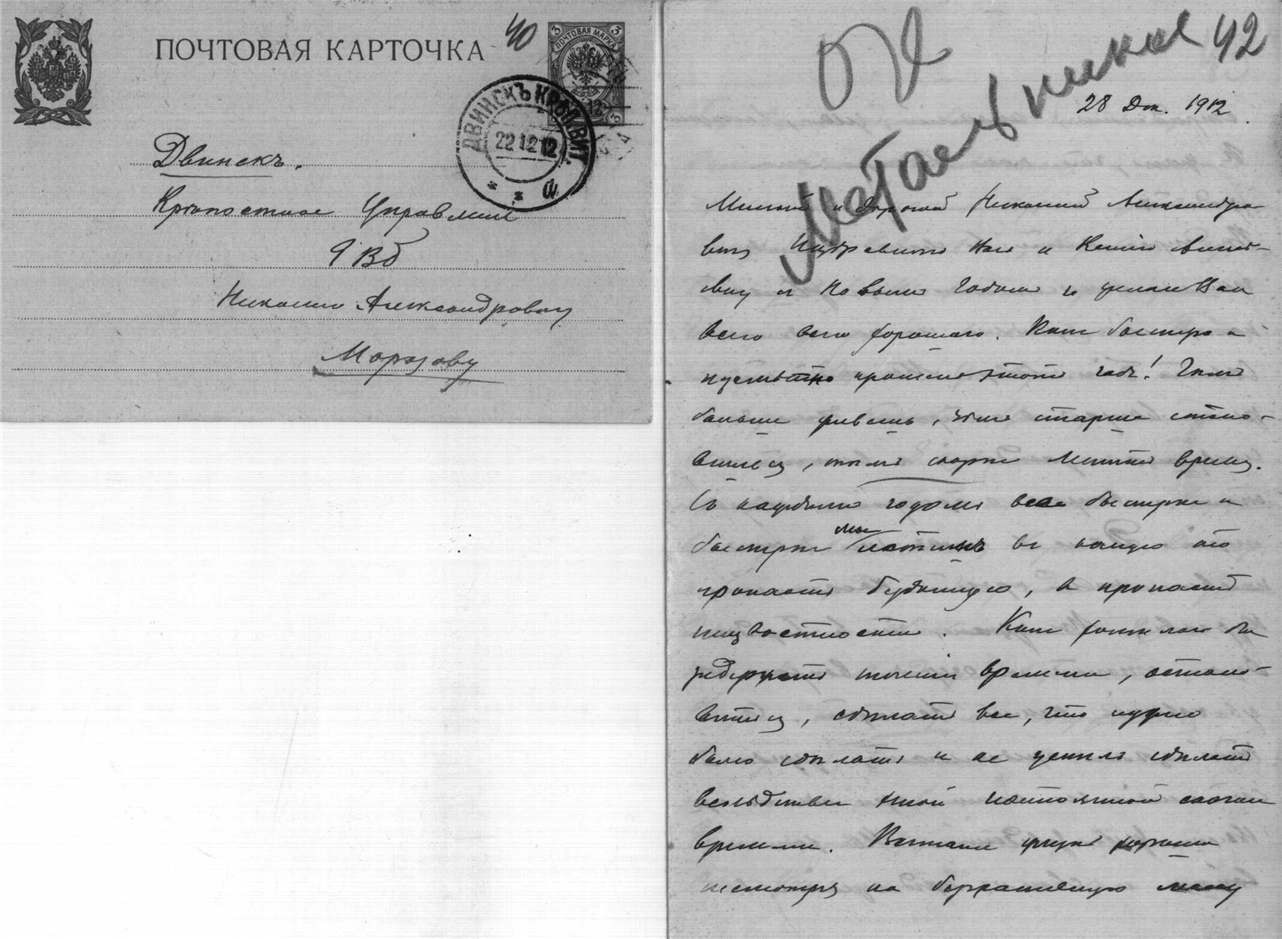 40
ПОЧТОВАЯ КАРТОЧКА
3 ПОЧТОВАЯ МАРКА 3
ДВИНСКЪ КРѢП. ВИТ.
22 12 12
а
Двинскъ.
Крѣпостное Управленіе
Николаю Александровичу
Морозову
42
Метальников
28 Дек. 1912.
Милый и дорогой Николай Александро
вичъ Поздравляю Васъ и Ксенію Алексѣ-
евну съ Новымъ Годомъ и желаю Вамъ
всего всего хорошаго. Какъ быстро и
незамѣтно прошелъ этотъ годъ! Чѣмъ
больше живешь, чѣмъ старше стано-
вишься, тѣмъ скорѣе летитъ время.
Съ каждымъ годомъ все быстрѣе и
быстрѣе мы летимъ въ какую то
пропасть будущаго, въ пропасть
неизвѣстности. Какъ хотѣлось бы
задержать теченіе времени, остано-
виться, сдѣлать все, что нужно
было сдѣлать и не успѣлъ сдѣлать
вслѣдствіе этой постоянной скачки
времени. Вспоминая
несмотря на мою